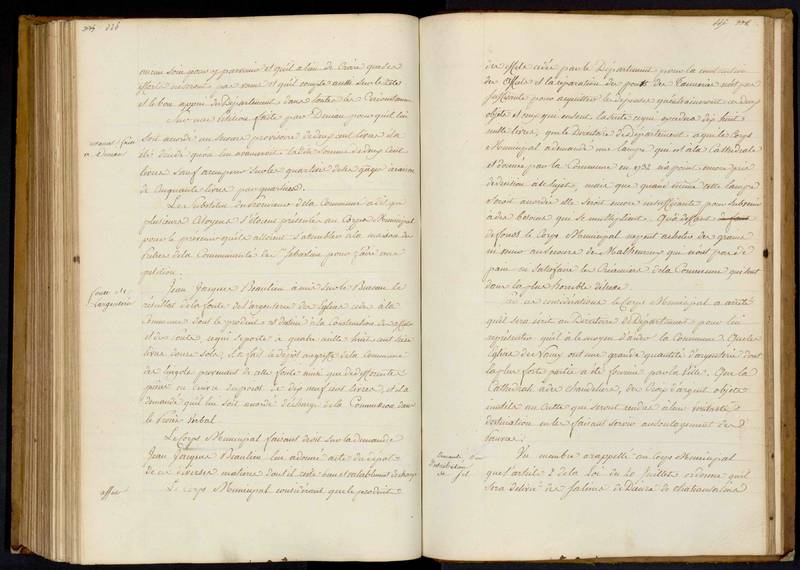 226
aucun soin pour y parvenir et qu'il a lieu de croire que ses
efforts ne seront pas vains et qu'il compte aussi sur le zèle
et le bon appui du Département dans toutes les Circonstances
Sur une pétition faite par Denan pour qu'il lui
soit accordé un secours provisoire de deux cent livres il a
été décidé qu'on lui avanceroit ladite somme de deux cent
livres sauf à compter sur les quartiers de ses gages à raison
de Cinquante livres par quartier.
Le Substitut du Procureur de la Commune a dit que
plusieurs Citoyens s'étoient présentés au Corps Municipal
pour le prévenir qu'ils alloient s'assembler à la maison des
frères de la Communauté de St Sébastien pour faire une
pétition.
fonte de
l'argenterie
Jean Jacques Beaulieu a mis sur le Bureau le
résultat de la fonte de l'argenterie des Eglises cédée à la
Commune dont le produit est destiné à la Construction des
et des routes, lequel se porte à quatre mille huit cent
livres douze sols, il a fait le dépôt au greffe de la Commune
des lingots provenant de cette fonte ainsi que de différentes
pièces en cuivre du poids de dix neuf cens livres, et il a
demandé qu'il lui soit accordé décharge de la Commission dans
le procès verbal
Le Corps Municipal faisant droit sur la demande
Jean Jacques Beaulieu lui a donné acte du dépôt
de ces diverses matières dont il reste bien et valablement déchargé
Le Corps Municipal considérant que le produit
des effets cédés par le Département pour la construction
des et la réparation du pont des Tanneries n'est pas
suffisante pour acquitter les dépenses qu'entraineroient ces deux
objets et ceux qui en sont la suite ce qui excédera dix huit
mille livres, que le Directoire de Département à qui le Corps
Municipal a demandé une lampe qui est à la Cathédrale
et donnée par la Commune en 1732 n'a point encore pris
de décision à ce sujet, mais que quand même cette lampe
seroit accordée elle seroit encore insuffisante pour subvenir
à des besoins qui se multiplient. Qu'à deffaut
de fonds le Corps Municipal ne peut acheter des grains
ni venir au secours des Malheureux qui n'ont pas de
pain ou satisfaire les Créanciers de la Commune qui sont
dans la plus horrible détresse.
Par ces considérations le Corps Municipal a arrêté
qu'il sera écrit au Directoire du Département pour lui
représenter qu'il a le moyen d'aider la Commune. Que les
Eglises de Nancy ont une grande quantité d'argenterie dont
la plus forte partie a été fournie par la Ville. Que la
Cathédrale a des chandeliers, des Croix d'argent objets
inutiles au Culte qui seront rendus à leur véritable
destination en les faisant servir au soulagement des
Pauvres.
Un membre a rappellé au Corps Municipal
que l'article 2 de la Loi du 20 Juillet ordonne qu'il
sera délivré des salines de Dieuze de Chateausalins